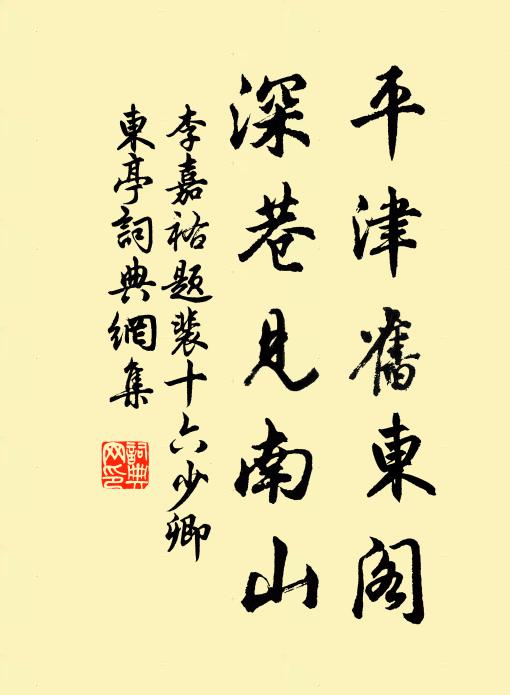 平津舊東閣
深巷見南山
李嘉祐題裴十六少卿
東亭詞典網集
詞典网印